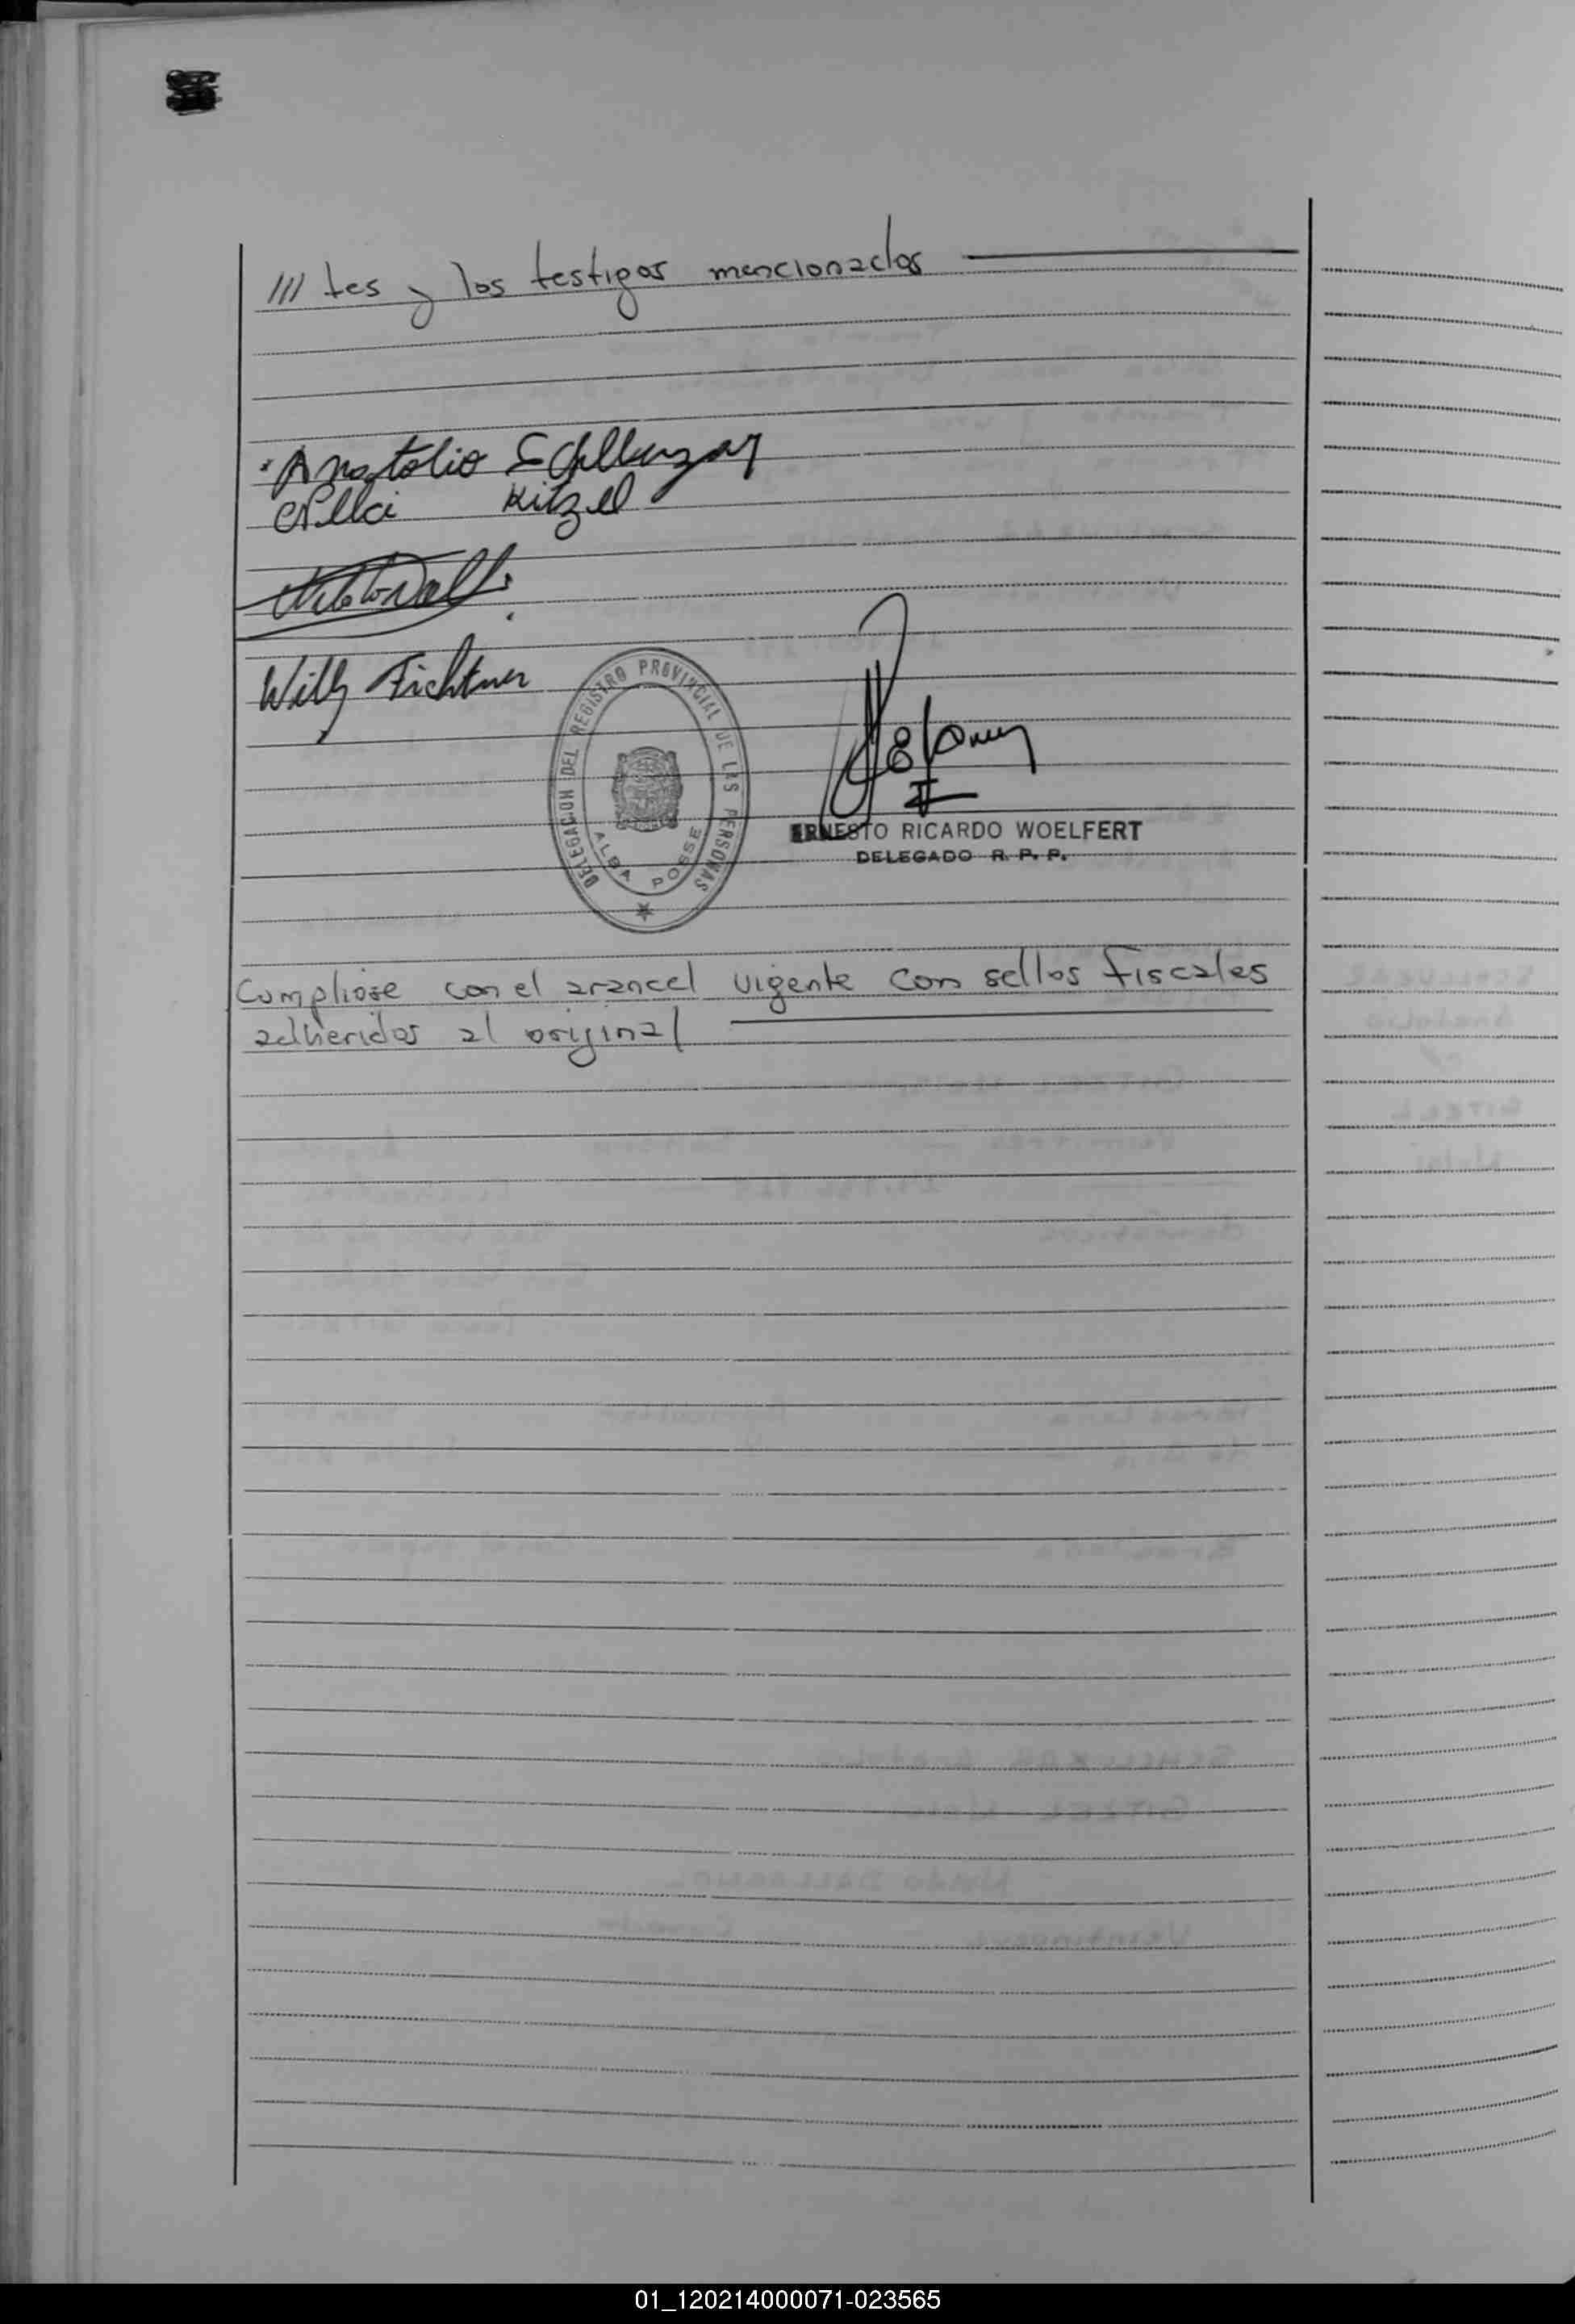 /// tes y los testigos mencionados
Anatolio
Nelci Kitzel
Willy Fichtner
DELEGACION DEL REGISTRO PROVINCIAL DE LAS PERSONAS
ALBA POSSE
ERNESTO RICARDO WOELFERT
DELEGADO R. P. P.
Cumpliose con el arancel vigente con sellos fiscales
adheridos al original
01_120214000071-023565